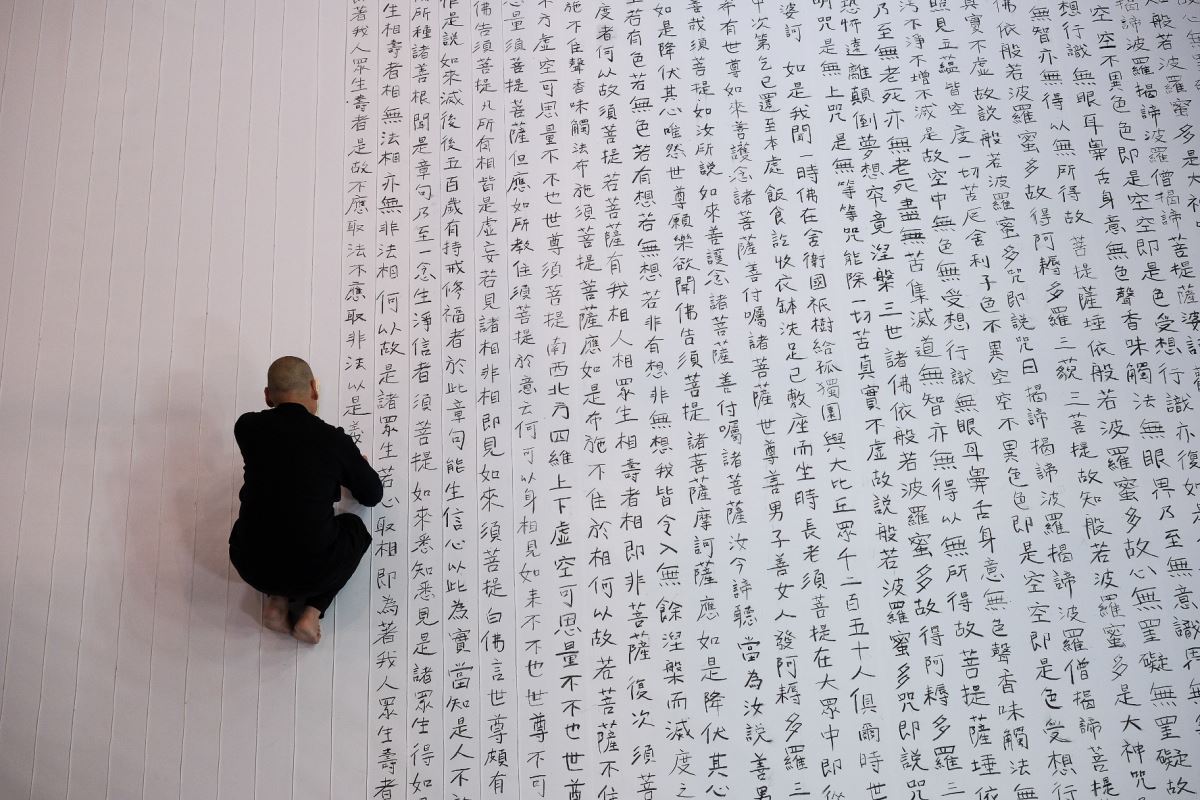 般若波羅蜜多是大神
揭諦波羅揭諦波羅僧揭諦菩提薩婆訶
空空不異色色即是空空即是色受想行識亦復如
想行識無眼耳鼻舌身意無色聲香味觸法無眼界乃至無意識界無
無智亦無得以無所得故 菩提薩埵依般若波羅蜜多故心無罣礙無罣礙故
佛依般若波羅蜜多故得阿耨多羅三藐三菩提故知般若波羅蜜多是大神咒
真實不虛故說般若波羅蜜多咒即說咒曰 揭諦揭諦波羅揭諦波羅僧揭諦菩提
照見五蘊皆空度一切苦厄舍利子色不異空空不異色色即是空空即是色受想行
污不淨不增不減是故空中無色無受想行識無眼耳鼻舌身意無色聲香味觸法無
乃至無老死亦無老死盡無苦集滅道無智亦無得以無所得故菩提薩埵依
恐怖遠離顛倒夢想究竟涅槃三世諸佛依般若波羅蜜多故得阿耨多羅三
明咒是無上咒是無等等咒能除一切苦真實不虛故說般若波羅蜜多咒即說咒
婆訶 如是我聞一時佛在舍衛國祇樹給孤獨園與大比丘眾千二百五十人俱爾時世
中次第乞已還至本處飯食訖收衣鉢洗足已敷座而坐時長老須菩提在大眾中即從
希有世尊如來善護念諸菩薩善付囑諸菩薩世尊善男子善女人發阿耨多羅三
善哉須菩提如汝所說如來善護念諸菩薩善付囑諸菩薩汝今諦聽當為汝說善男
如是降伏其心唯然世尊願樂欲聞佛告須菩提諸菩薩摩訶薩應如是降伏其心
生若有色若無色若有想若無想若非有想非無想我皆令入無餘涅槃而滅度之
度者何以故須菩提若菩薩有我相人相眾生相壽者相即非菩薩復次須菩
施不住聲香味觸法布施須菩提菩薩應如是布施不住於相何以故若菩薩不住
方虛空可思量不不也世尊須菩提南西北方四維上下虛空可思量不不也世尊
思量須菩提菩薩但應如所教住須菩提於意云何可以身相見如來不不也世尊不可
佛告須菩提凡所有相皆是虛妄若見諸相非相即見如來須菩提白佛言世尊頗有
作是說如來滅後後五百歲有持戒修福者於此章句能生信心以此為實當知是人不
所種諸善根聞是章句乃至一念生淨信者須菩提如來悉知悉見是諸眾生得如
生相壽者相無法相亦無非法相何以故是諸眾生若心取相即為著我人眾生壽者
著我人眾生壽者是故不應取法不應取非法以是義